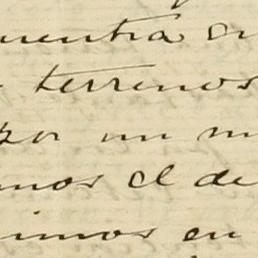 uentra en
terrenos
por un m
mos el de
imos en